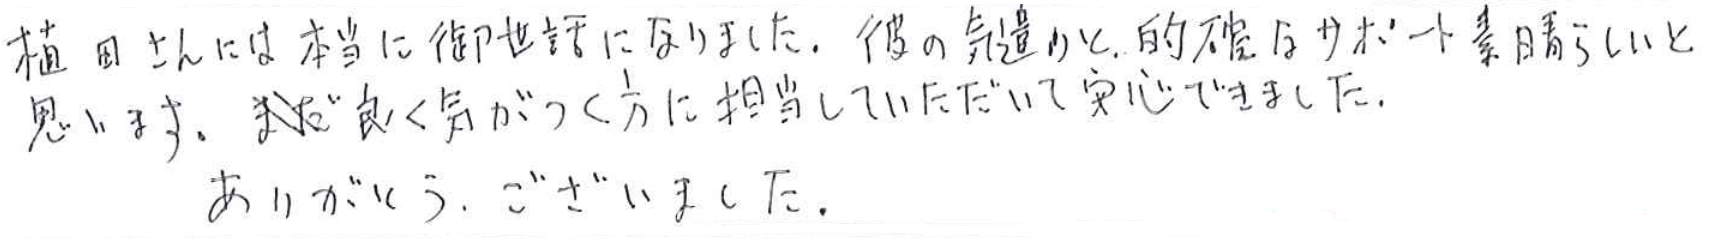 植田さんには本当に御世話になりました。彼の気遣いと、的確なサポート素晴らしいと
思います。良く気がつく方に担当していただいて安心できました。
ありがとう、ございました。